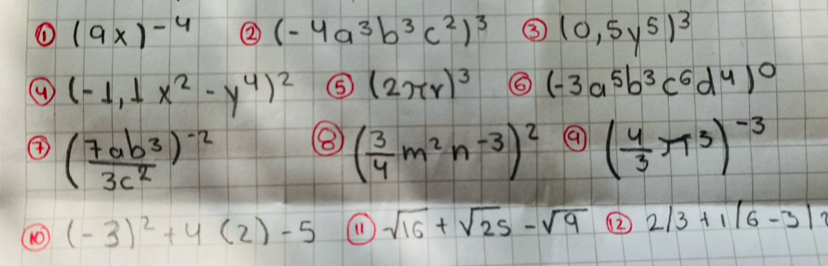 ① (9x)⁻⁴ ② (-4a³b³c²)³ ③ (0,5y⁵)³
④ (-1,1x² - y⁴)² ⑤ (2πr)³ ⑥ (-3a⁵b³c⁶d⁴)⁰
⑦ (7ab³/3c²)⁻² ⑧ (3/4 m²n⁻³)² ⑨ (4/3 πr³)⁻³
⑩ (-3)² + 4(2) - 5 ⑪ √16 + √25 - √9 ⑫ 2/3 + 1/6 - 3/